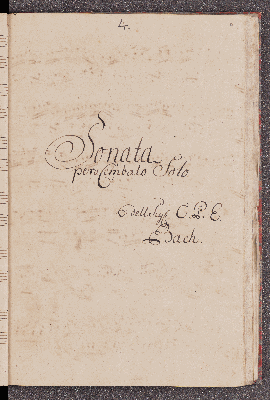 4.
Sonata
per il Cembalo Solo
dell Sigr C. P. E.
Bach.